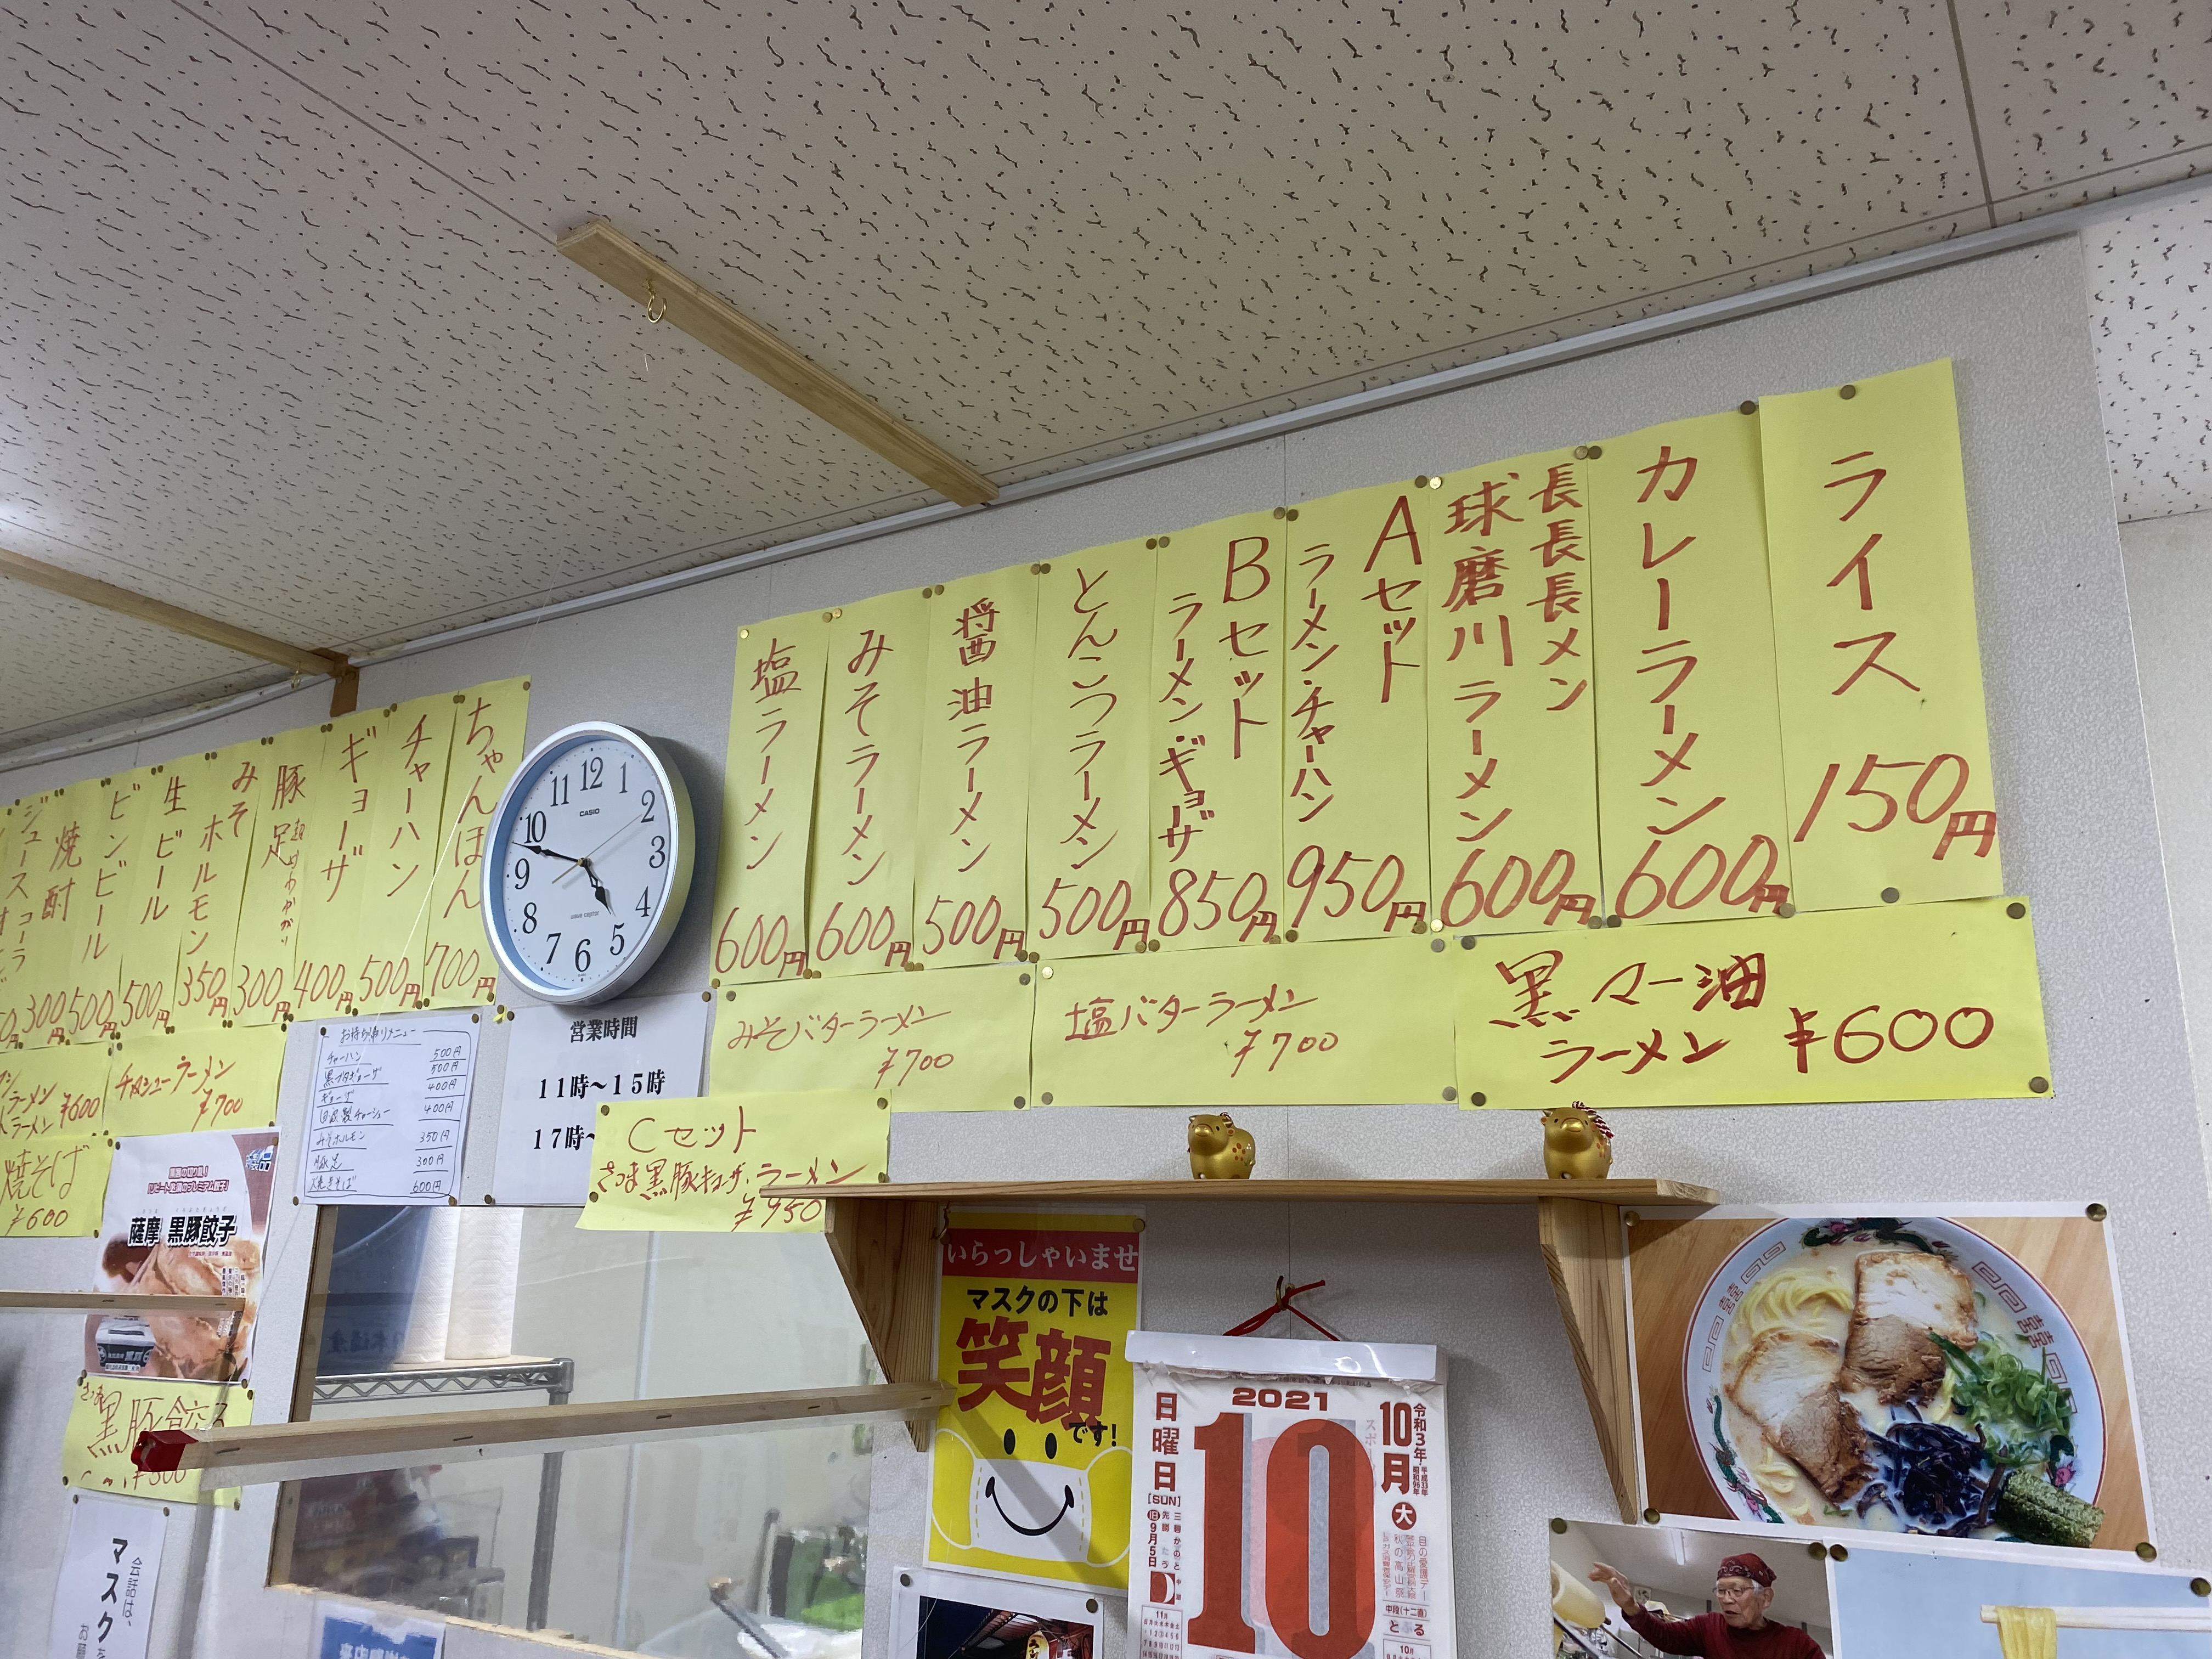 ライス
150円
カレーラーメン
600円
長長長メン
球磨川ラーメン
600円
Aセット
ラーメン・チャーハン
950円
Bセット
ラーメン・ギョーザ
850円
とんこつラーメン
500円
醤油ラーメン
500円
みそラーメン
600円
塩ラーメン
600円
ちゃんぽん
700円
チャーハン
500円
ギョーザ
400円
豚足
300円
みそホルモン
350円
生ビール
500円
ビンビール
500円
焼酎
300円
ジュース
コーラ
黒マー油
ラーメン ¥600
塩バターラーメン
¥700
みそバターラーメン
¥700
12
1
2
3
4
5
6
7
8
9
10
11
CASIO
営業時間
11時~15時
17時~
Cセット
さつま黒豚ギョーザ・ラーメン
¥950
お持ち帰りメニュー
チャーハン 500円
黒ブタギョーザ 500円
ギョーザ 400円
自家製チャーシュー 400円
みそホルモン 350円
豚足 300円
焼きそば 600円
チャーシューラーメン
¥700
ラーメン ¥600
ラーメン
焼そば
¥600
薩摩 黒豚餃子
さつま
黒豚餃子
会話は、
マスクを
いらっしゃいませ
マスクの下は
笑顔
です!
2021
10月
令和3年
平成33年
昭和96年
大
日曜日
[SUN]
旧9月5日
先勝
10
目の愛護デー
秋の高山祭
中段(十二直)
とる
11月
10月